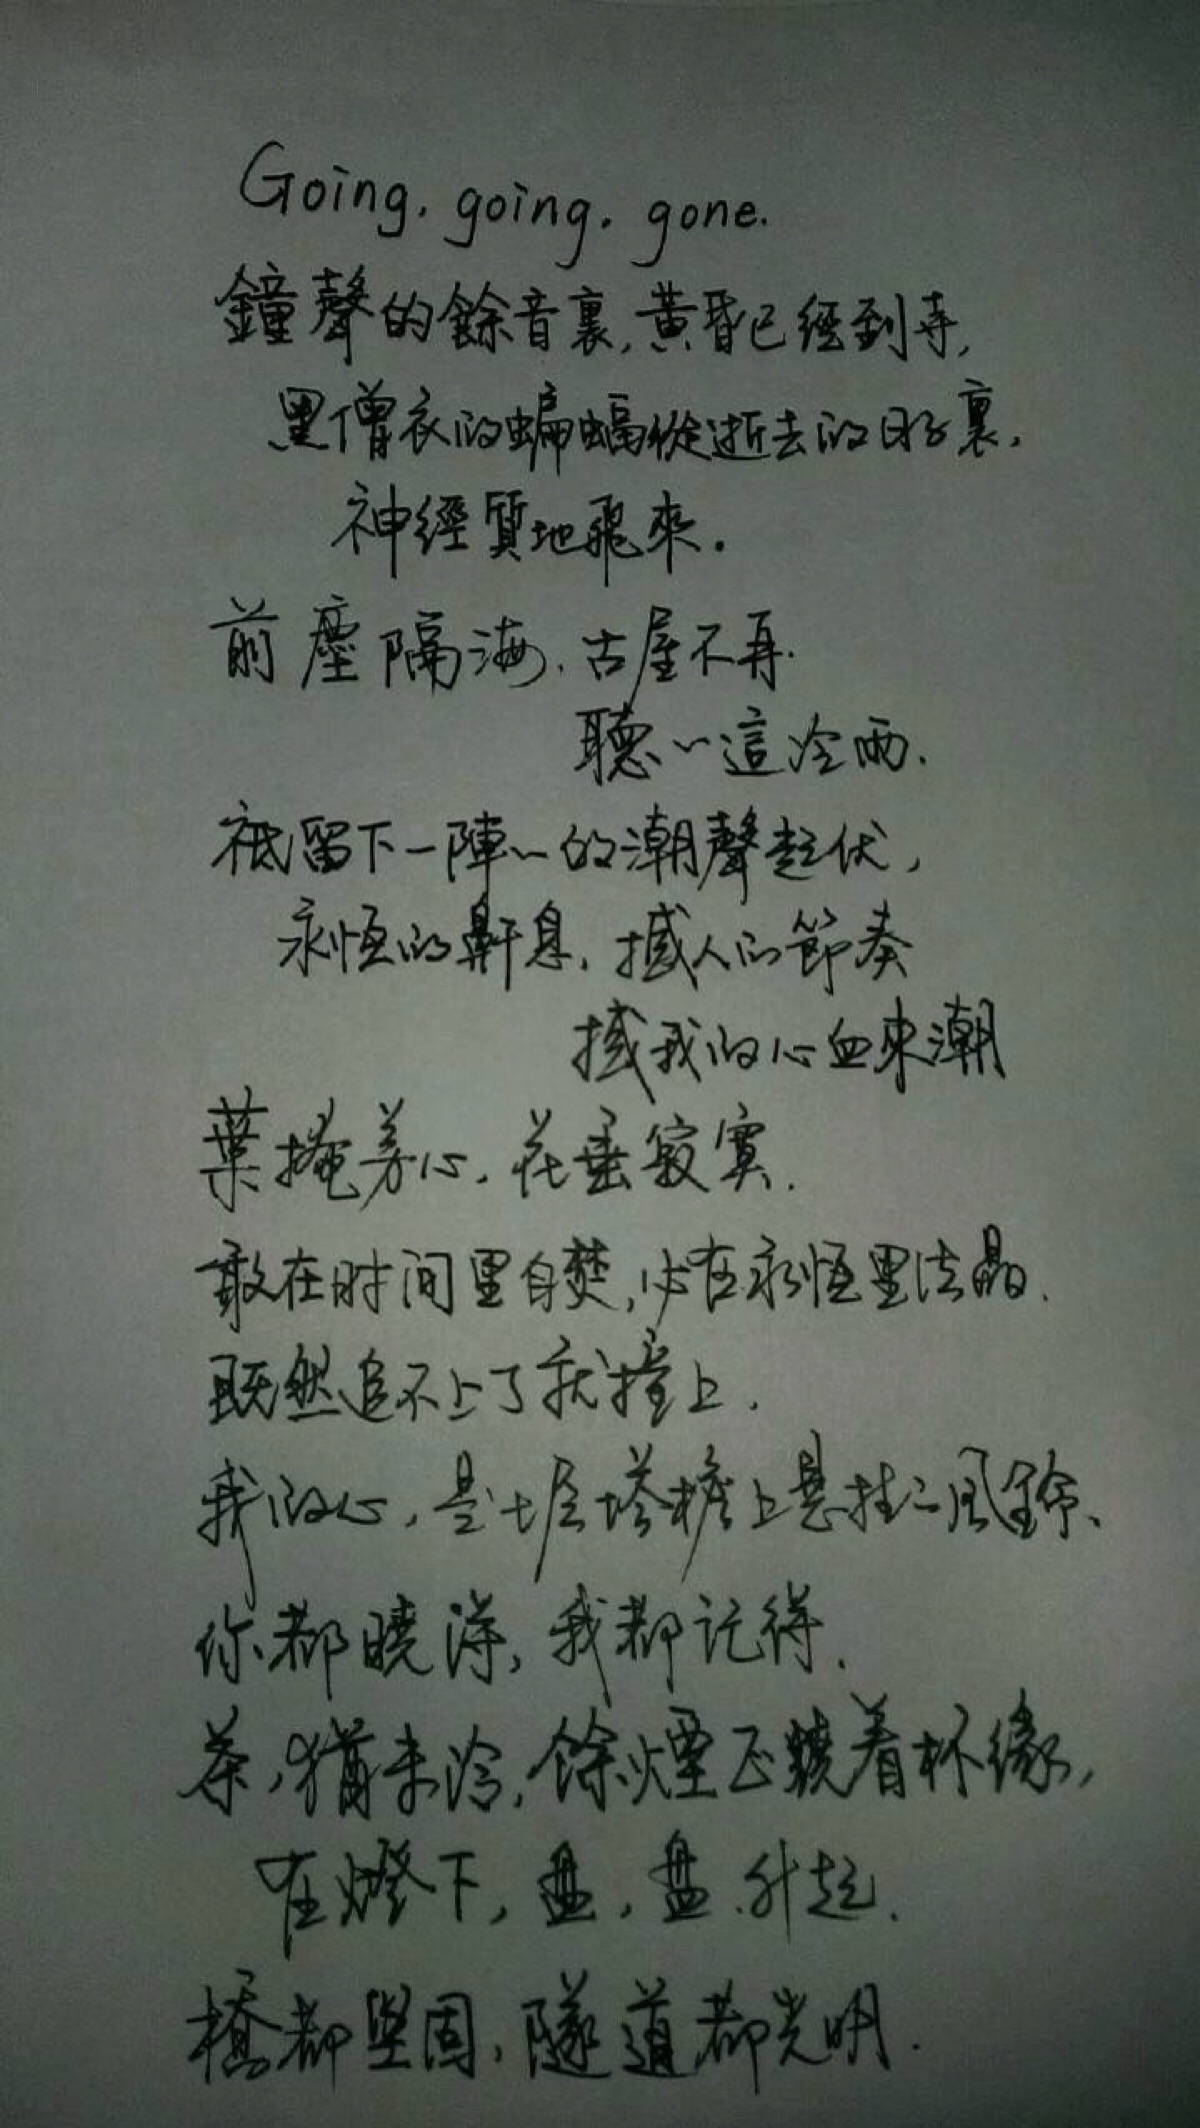 Going. going. gone.
鐘聲的餘音裏,黃昏已經到寺,
黑僧衣的蝙蝠從逝去的日子裏,
神經質地飛來.
前塵隔海.古屋不再.
聽〻這冷雨.
祗留下一陣〻的潮聲起伏,
永恆的鼾息.撼人的節奏
撼我的心血來潮
葉掩芳心.花垂寂寞.
敢在时间里自焚,必在永恆里结晶.
既然追不上了就撞上.
我的心,是七层塔檐上悬挂の风鈴、
你都曉得,我都记得.
茶,猶未冷,餘煙正繞着杯緣,
在燈下,盘,盘.升起.
橋都堅固,隧道都光明.